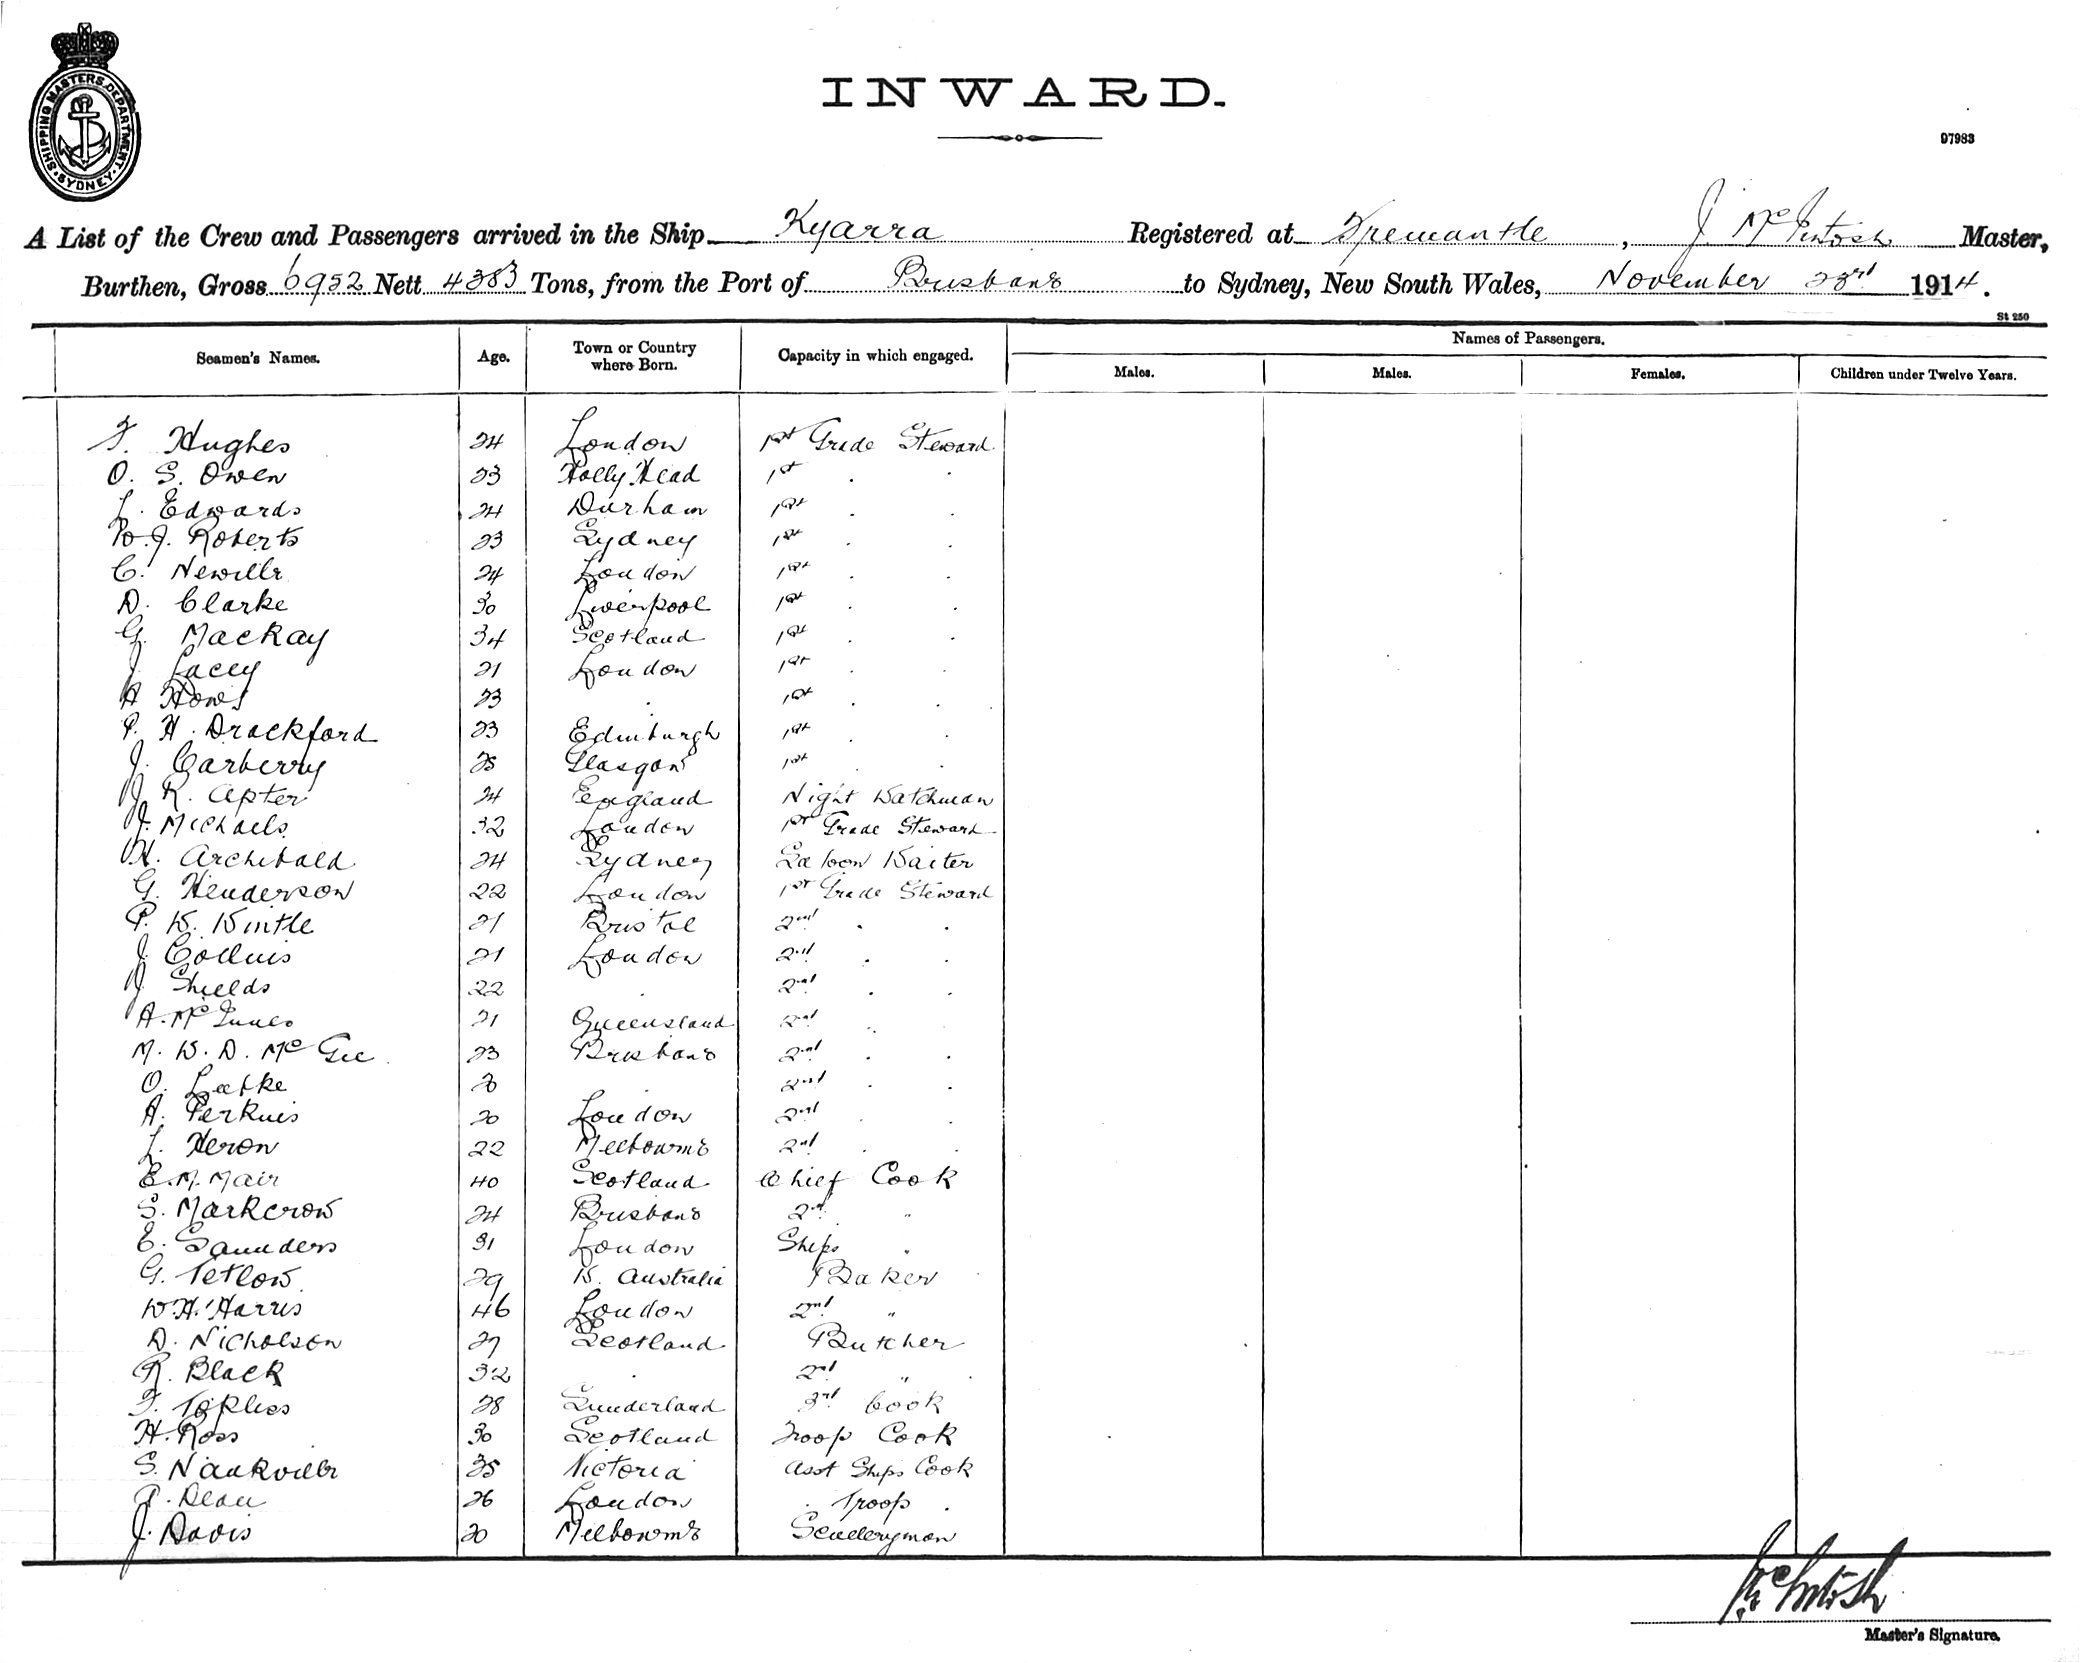 SHIPPING MASTERS DEPARTMENT SYDNEY
INWARD.
97983
A List of the Crew and Passengers arrived in the Ship Kyarra Registered at Fremantle, J McIntosh Master,
Burthen, Gross 6952 Nett 4383 Tons, from the Port of Brisbane to Sydney, New South Wales, November 23rd 1914.
St 250
Seamen's Names. Age. Town or Country where Born. Capacity in which engaged. Names of Passengers.
Males. Males. Females. Children under Twelve Years.
F. Hughes 24 London 1st Grade Steward
O. S. Owen 23 Holly Head 1st . .
L. Edwards 24 Durham 1st . .
W. J. Roberts 23 Sydney 1st . .
C. Neville 24 London 1st . .
D. Clarke 30 Liverpool 1st . .
G. Mackay 34 Scotland 1st . .
J Lacey 21 London 1st . .
A 23 . 1st . .
P. H. Drackford 23 Edinburgh 1st . .
J. Carberry 25 Glasgow 1st . .
J R. Apter 24 England Night Watchman
J. Michaels 32 London 1st Grade Steward
W. Archibald 24 Sydney Saloon Waiter
G. Henderson 22 London 1st Grade Steward
P. W. Wintle 21 Bristol 2nd . .
J Collins 21 London 2nd . .
J Shields 22 . 2nd . .
A. McInnes 21 Queensland 2nd . .
M. W. D. McGee 23 Brisbane 2nd . .
O. 20 2nd . .
A. Perkins 20 London 2nd . .
L. Heron 22 Melbourne 2nd . .
E. M. Mair 40 Scotland Chief Cook
S. Markcrow 24 Brisbane 2nd "
E. Saunders 31 London Ships "
G. Tetlow 29 W. Australia Baker
W. H. Harris 46 London 2nd "
D. Nicholson 27 Scotland Butcher
R. Black 32 . 2nd "
F. Toplies 28 Sunderland 3rd Cook
H. Ross 30 Scotland Troop Cook
S. Nankville 35 Victoria Asst Ships Cook
A. Dean 26 London . Troop .
J. Davis 20 Melbourne Sculleryman
McIntosh
Master's Signature.